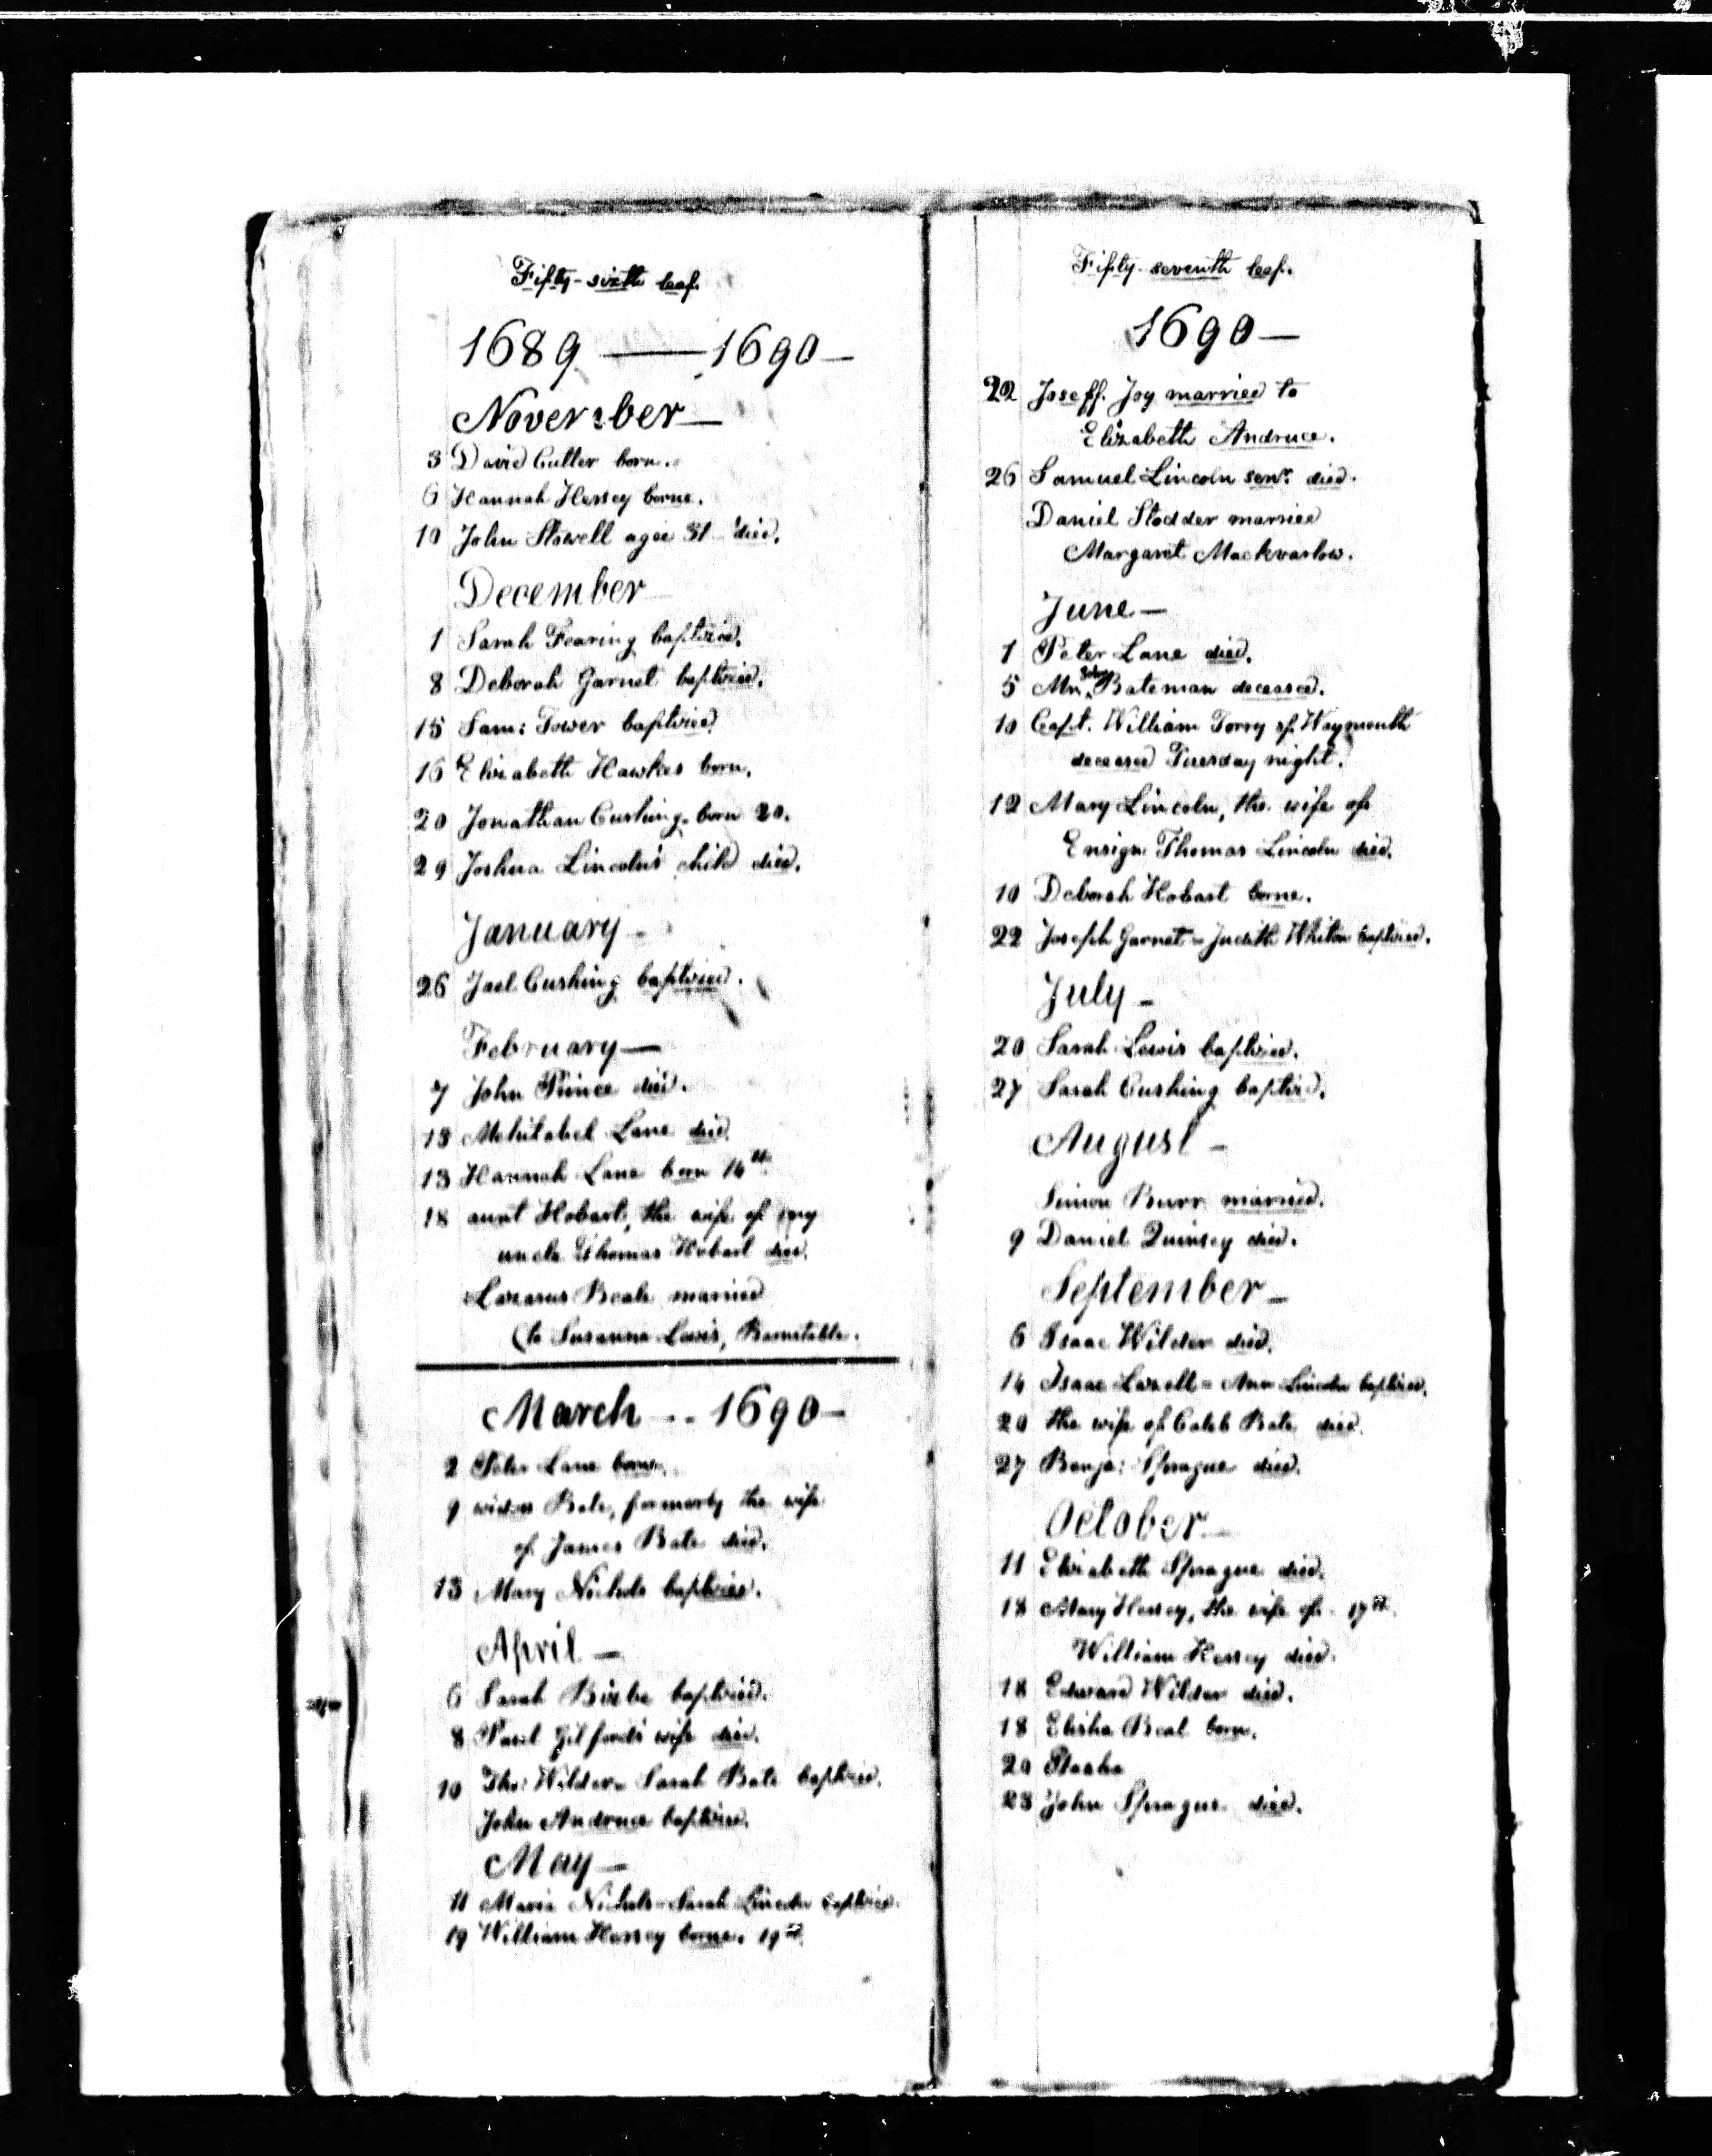 Fifty-sixth leaf.
1689 — 1690 —
November —
3 David Cutler born.
6 Hannah Hersey borne.
10 John Stowell agee 31 died.
December
1 Sarah Fearing baptized.
8 Deborah Garnet baptized.
15 Sam: Tower baptized
16 Elizabeth Hawkes born.
20 Jonathan Cushing. born 20.
29 Joshua Lincoln's child died.
January -
26 Jael Cushing baptized.
February —
7 John Prince died.
13 Mehitabel Lane died.
13 Hannah Lane born 14th
18 aunt Hobart, the wife of my
uncle Thomas Hobart died.
Lazarus Beale married
to Susanna Lewis, Barnstable.
March - - 1690 —
2 Peter Lane borne.
9 widow Bate, formerly the wife
of James Bate died.
13 Mary Nichols baptized.
April —
6 Sarah Birbe baptized.
8 Paul Gilford's wife died.
10 Tho: Wilder = Sarah Bate baptized.
John Andruce baptized.
May —
11 Maria Nichols = Sarah Lincoln baptized.
19 William Hersey borne. 19th
Fifty-seventh leaf.
1690 —
22 Joseff. Joy married to
Elizabeth Andruce.
26 Samuel Lincoln senr. died.
Daniel Stodder married
Margaret Mackvarlow.
June —
1 Peter Lane died.
5 Mr. Bateman deceased.
10 Capt. William Torry of Waymouth
deceased Tuesday night.
12 Mary Lincoln, the wife of
Ensign Thomas Lincoln died.
10 Deborah Hobart borne.
22 Joseph Garnet = Judith Whiton baptized.
July -
20 Sarah Lewis baptized.
27 Sarah Cushing baptized.
August -
Simon Burr married.
9 Daniel Quinsey died.
September -
6 Isaac Wilder died.
14 Isaac Lazell = Ann Lincoln baptized.
20 the wife of Caleb Bate died.
27 Benja: Sprague died.
October —
11 Elizabeth Sprague died.
18 Mary Hersey, the wife of 17th
William Hersey died.
18 Edward Wilder died.
18 Elisha Beal born.
20
23 John Sprague died.